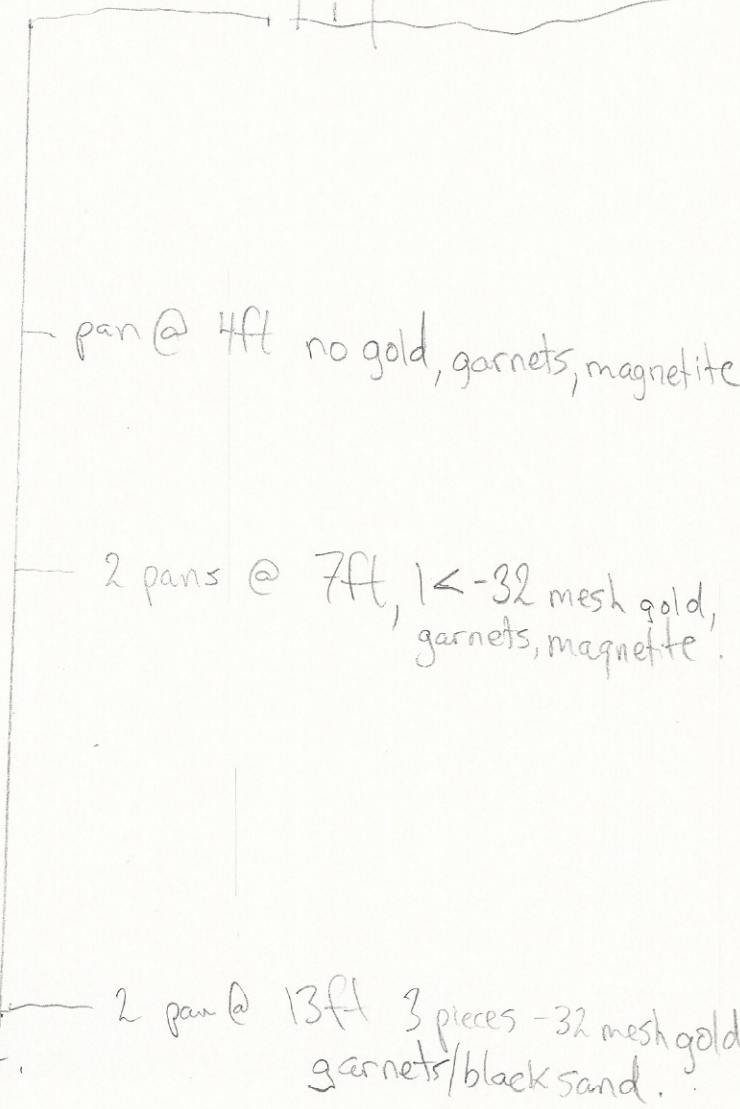 pan @ 4ft no gold, garnets, magnetite
2 pans @ 7ft, 1< -32 mesh gold,
garnets, magnetite.
2 pan @ 13ft 3 pieces -32 mesh gold
garnets/black sand.